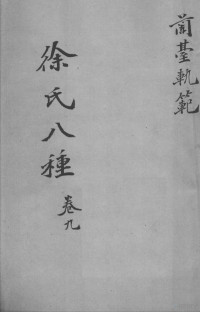 蘭臺軌範
徐氏八種
卷九